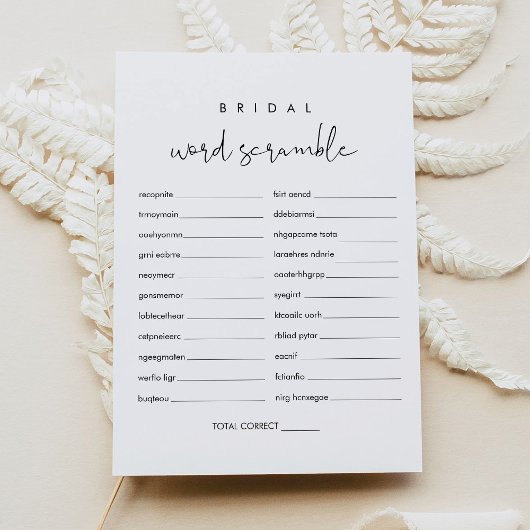 BRIDAL
word scramble
recopnite
trmoymain
aoehyonmn
grni eabrre
neoymecr
gonsmemor
lobtecethear
cetpneierc
ngeegmaten
werflo ligr
buqteou
fsirt aencd
ddebiarmsi
nhgapcame tsota
laraehres ndnrie
oaoterhhgrpp
syegirrt
ktcoailc uorh
rbliad pytar
eacnif
fctianfio
nirg hcnxegae
TOTAL CORRECT